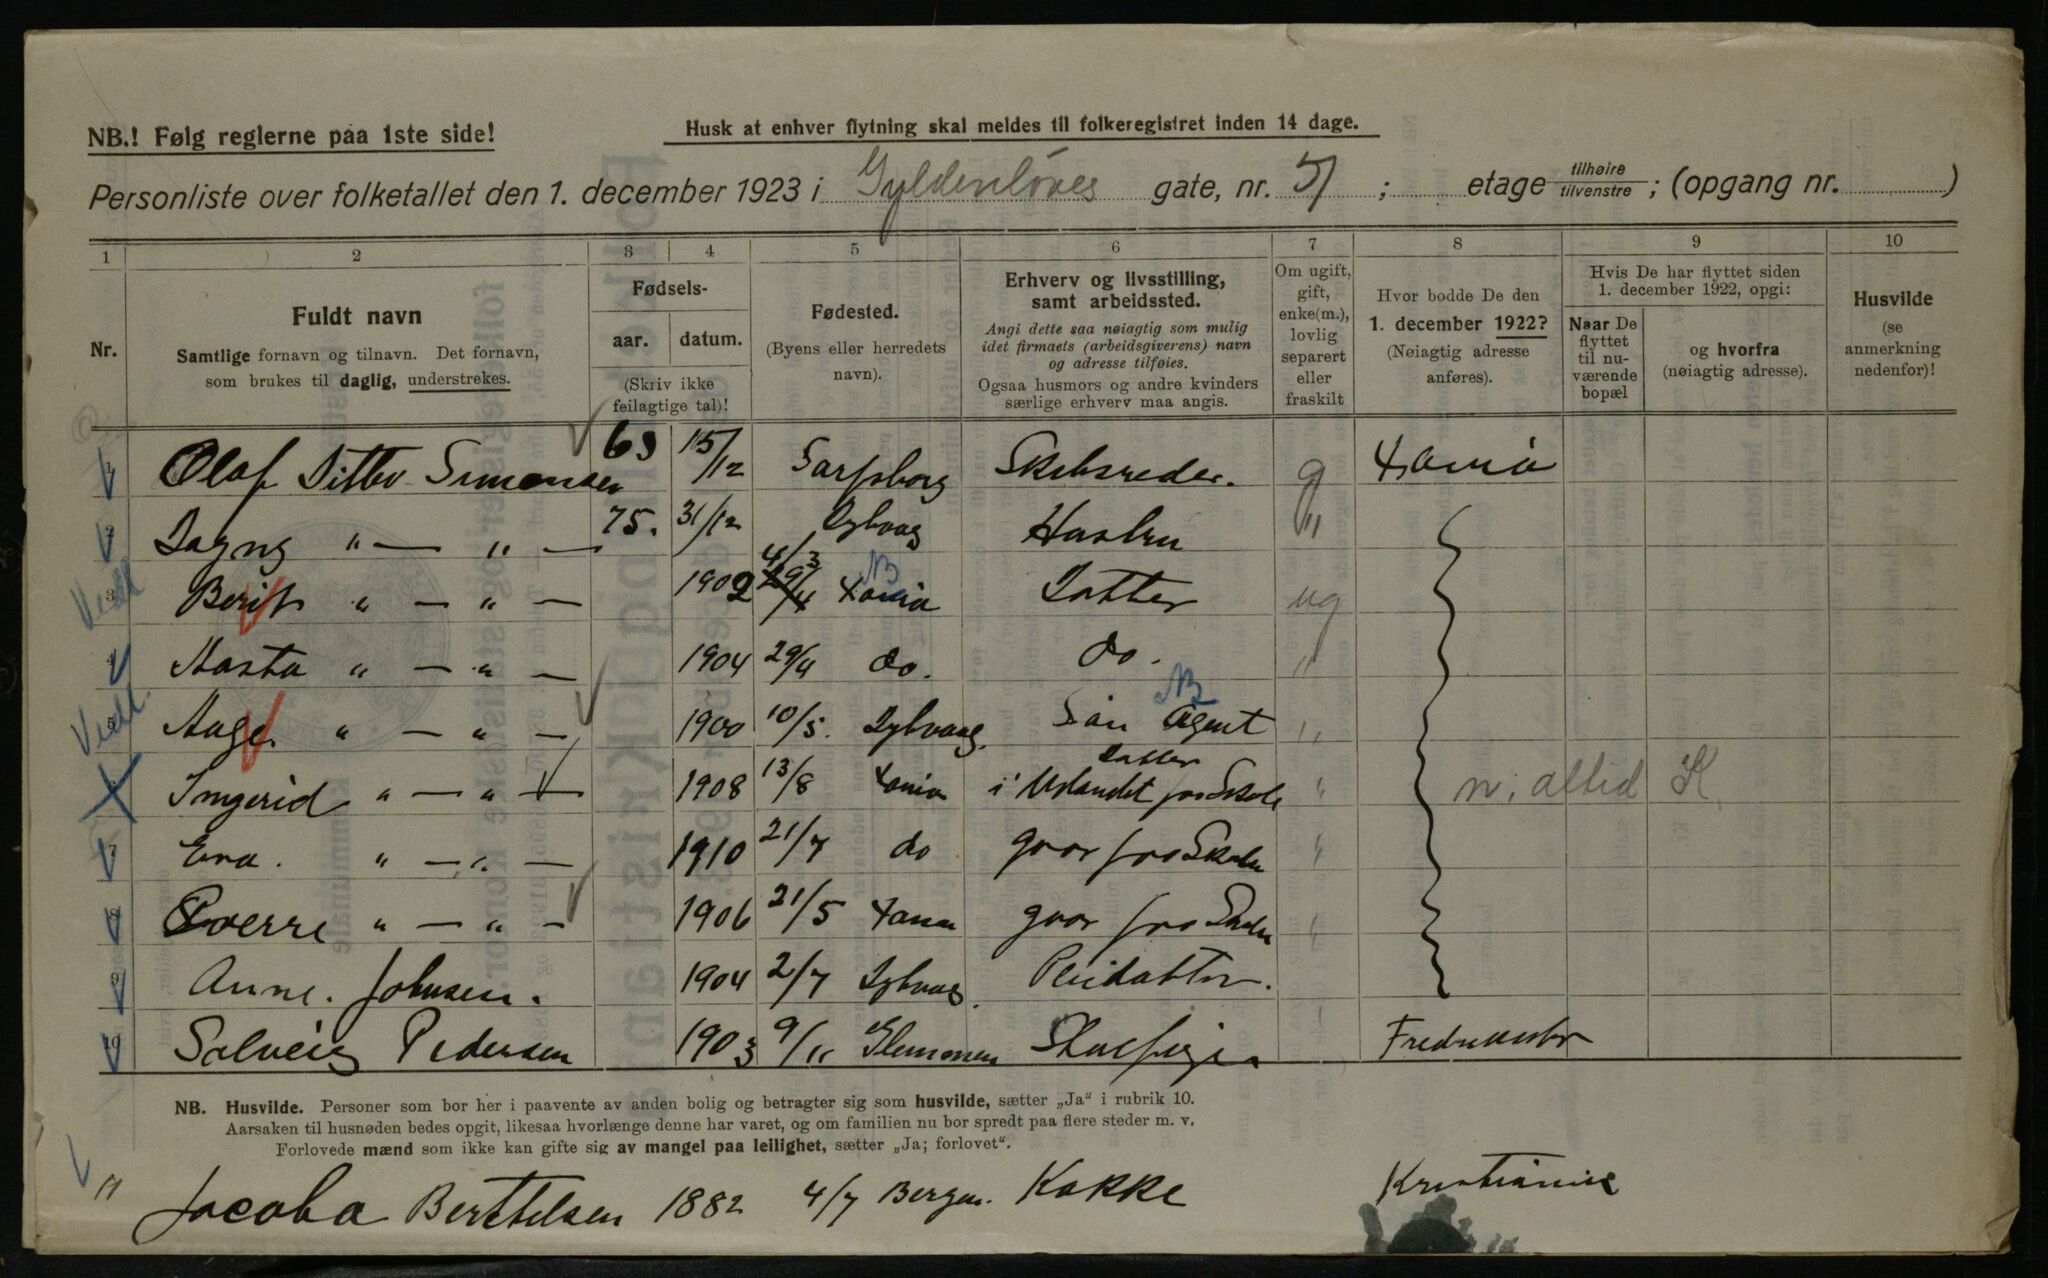 NB.! Følg reglerne paa 1ste side!
Husk at enhver flytning skal meldes til folkeregistret inden 14 dage.
Personliste over folketallet den 1. december 1923 i Gyldenløves gate, nr. 51; etage tilhøire tilvenstre; (opgang nr. )
1 2 3 4 5 6 7 8 9 10
Nr.
Fuldt navn
Samtlige fornavn og tilnavn. Det fornavn,
som brukes til daglig, understrekes.
Fødsels-
aar. datum.
(Skriv ikke
feilagtige tal)!
Fødested.
(Byens eller herredets
navn).
Erhverv og livsstilling,
samt arbeidssted.
Angi dette saa nøiagtig som mulig
idet firmaets (arbeidsgiverens) navn
og adresse tilføies.
Ogsaa husmors og andre kvinders
særlige erhverv maa angis.
Om ugift,
gift,
enke(m.),
lovlig
separert
eller
fraskilt
Hvor bodde De den
1. december 1922?
(Nøiagtig adresse
anføres).
Hvis De har flyttet siden
1. december 1922, opgi:
Naar De
flyttet
til nu-
værende
bopæl
og hvorfra
(nøiagtig adresse).
Husvilde
(se
anmerkning
nedenfor)!
1 Olaf Ditlev Simonsen 63 15/12 Sarpsborg Skibsreder. g Xania
2 Dagny " — " — 75. 31/12 Dybvag Hustru "
3 Berit " — " — 1902 4/3 Xania NB Datter ug
4 Aasta " — " — 1904 29/4 do. do. "
5 Aage " — " — 1900 10/5. Dybvaag. Søn Agent NB "
6 Ingerid " — " — 1908 13/8 Xania Datter i Utlandet paa Skole " n. altid K.
7 Eva. " — " — 1910 21/7 do gaar paa Skole "
8 Sverre " — " — 1906 21/5 Xania gaar paa Skole "
9 Anne. Johnsen. 1904 2/7 Dybvaag.
10 Solveig Pedersen 1903 9/11 Glemmen Stuepige
NB. Husvilde. Personer som bor her i paavente av anden bolig og betragter sig som husvilde, sætter „Ja" i rubrik 10.
Aarsaken til husnøden bedes opgit, likesaa hvorlænge denne har varet, og om familien nu bor spredt paa flere steder m. v.
Forlovede mænd som ikke kan gifte sig av mangel paa leilighet, sætter „Ja; forlovet".
11 Jacoba Berthelsen 1882 4/7 Bergen. Kokke Kristiania